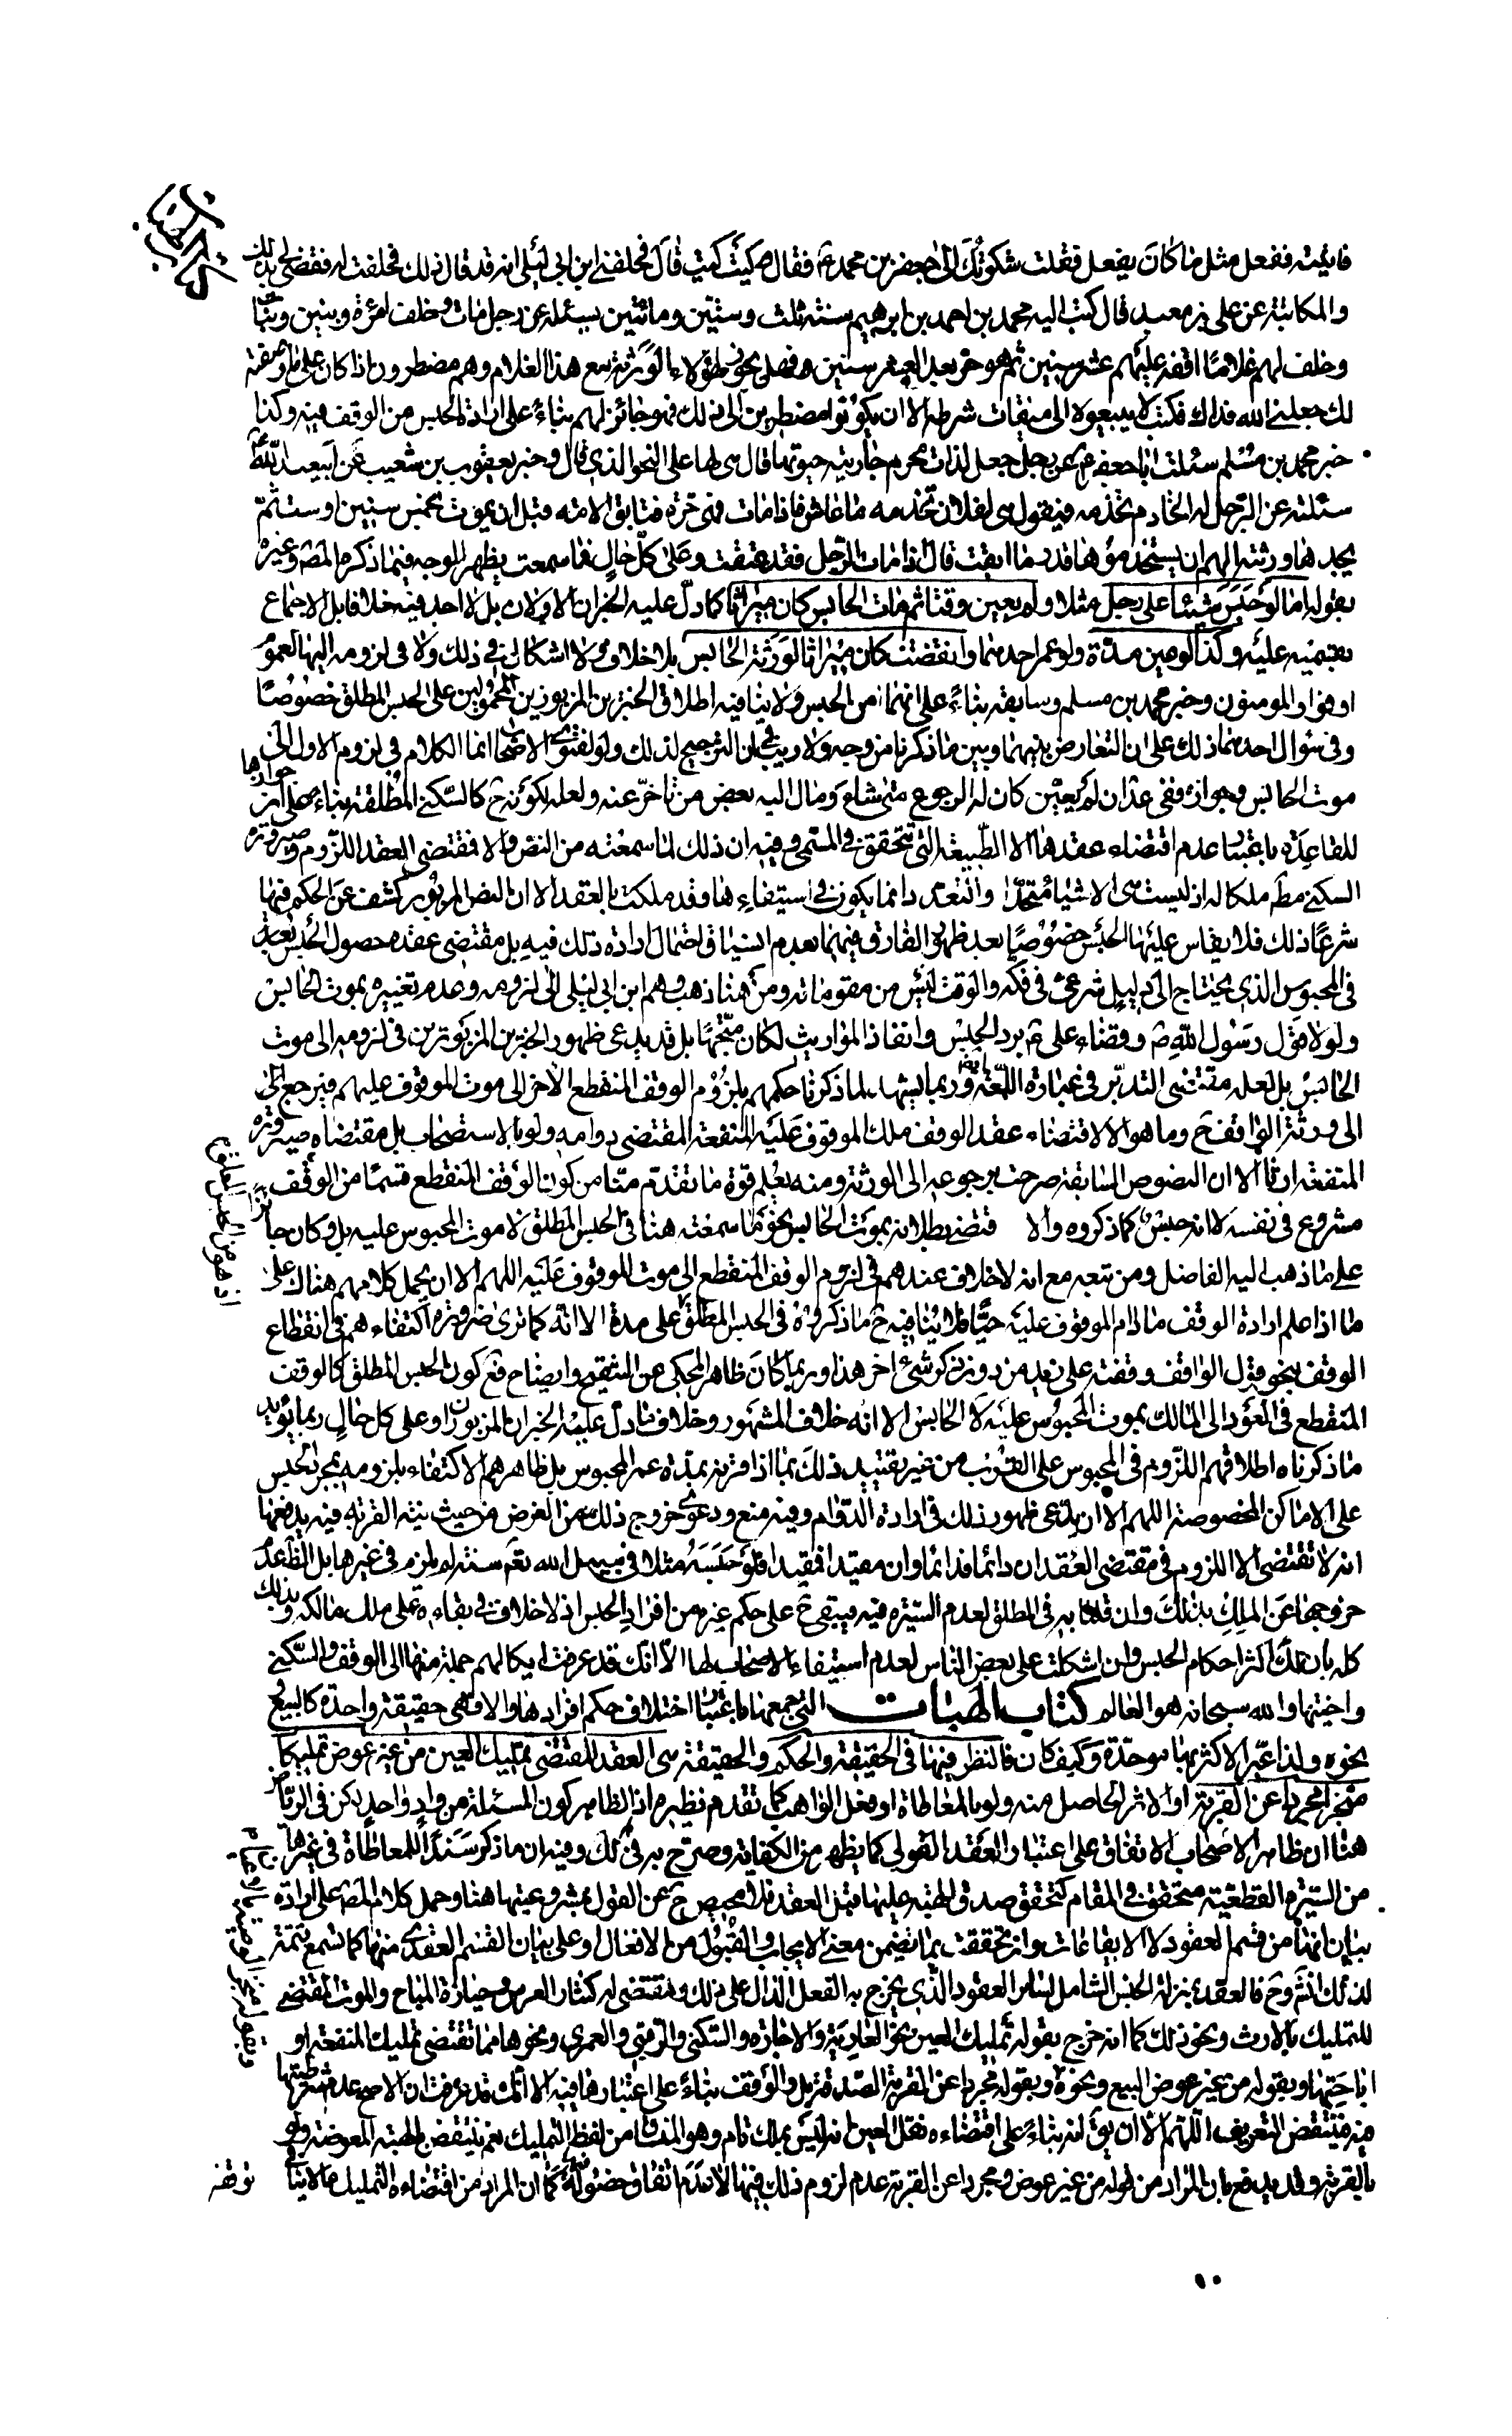 فاتيته ففعل مثل ما كان يفعل فقلت شكوتك الى جعفر بن محمد ع فقال كيت كيت قال فحلفنى ابن ابى ليلى انه قد قال ذلك فحلفت له فقضى لى بذلك
والمكاتبة عن على بن معبد قال كتب اليه محمد بن احمد بن ابرهيم سنة ثلث وستين ومائتين يسئله عن رجل مات وخلف امرئة وبنين وبنات
وخلف لهم غلاما اوقفه عليهم عشر سنين ثم هو حر بعد العشر سنين فهل يجوز لهؤلاء الورثة بيع هذا الغلام وهم مضطرون اذا كان على ما وصفته
لك جعلنى الله فداك فكتب لا يبيعوه الى ميقات شرطه الا ان يكونوا مضطرين الى ذلك فهو جائز لهم بناء على ارادة الحبس من الوقف فيه وكذا
خبر محمد بن مسلم سئلت ابا جعفر ع عن رجل جعل لذات محرم جاريته حيوتها قال هى لها على النحو الذى قال وخبر يعقوب بن شعيب عن ابيعبد الله ع
سئلته عن الرجل له الخادم تخدمه فيقول هى لفلان تخدمه ما عاش فاذا مات فهى حرة فتابق الامة قبل ان يموت بخمس سنين او ست ثم
يجدها ورثته الهم ان يستخدموها قدر ما ابقت قال اذا مات الرجل فقد عتقت وعلى كل حال فما سمعت يظهر الوجه فيما ذكره المصنف وغيره
بقوله اما لو حبس شيئا على رجل مثلا ولم يعين وقتا ثم مات الحابس كان ميراثا كما دل عليه الخبران الاولان بل لا اجد فيه خلافا بل الاجماع
بقسميه عليه وكذا لو عين مدة ولو عمر احدهما وانقضت كان ميراثا لورثة الحابس بلا خلاف ولا اشكال فى ذلك ولا فى لزومه اليها لعموم
اوفوا والمومنون وخبر محمد بن مسلم وسابقه بناء على انهما من الحبس ولا ينافيه اطلاق الخبرين المزبورين المحمولين على الحبس المطلق خصوصا
وفى سؤال احدهما ذلك على ان التعارض بينهما وبين ما ذكرنا من وجه ولا ريب فى ان الترجيح لذلك ولو لفتوى الاصحاب انما الكلام فى لزوم الاول الى
موت الحابس وجوازه ففى عد ان لم يعين كان له الرجوع متى شاء ومال اليه بعض من تاخر عنه ولعله لكونه ح كالسكنى المطلقة بناء على ان جوازها
للقاعدة باعتبار عدم اقتضاء عقدها الا الطبيعة التى تتحقق فى المسمى وفيه ان ذلك لما سمعته من النص والا فمقتضى العقد اللزوم وصيرورة
السكنى مطم ملكا له اذ ليست هى الا شيئا متحدا والتعدد انما يكون فى استيفاءها وقد ملكت بالعقد الا ان النص المزبور كشف عن الحكم فيها
شرعا ذلك فلا يقاس عليها الحبس خصوصا بعد ظهور الفارق فيهما بعدم انسياق احتمال ارادة ذلك فيه بل مقتضى عقده حصول الحبس بعد
فى المحبوس الذى يحتاج الى دليل شرعى فى فكه والوقت ليس من مقوماته ومن هنا ذهب وهم ابن ابى ليلى الى لزومه وعدم تغييره بموت الحابس
ولولا قول رسول الله ص وقضاء على ع برد الحبس وانفاذ المواريث لكان متجها بل قد يدعى ظهور الخبرين المزبورين فى لزومه الى موت
الحابس بل لعله مقتضى التدبر فى عبارة اللمعة وربما يشهد لما ذكرنا حكمهم بلزوم الوقف المنقطع الاخر الى موت الموقوف عليهم فيرجع الى
الى ورثة الواقف ح وما هو الا لاقتضاء عقد الوقف ملك الموقوف عليه المنفعة المقتضى دوامه ولو بالاستصحاب بل مقتضاه صيرورة
المنفعة ارثا الا ان النصوص السابقة صرحت برجوعه الى الورثة ومنه يعلم قوة ما تقدم منا من كون الوقف المنقطع قسما من الوقف
مشروع فى نفسه لا انه حبس كما ذكروه والا قتضى بطلانه بموت الحابس نحو ما سمعته هنا فى الحبس المطلق لا موت المحبوس عليه بل وكان جائزا
على ما ذهب اليه الفاضل ومن تبعه مع انه لا خلاف عندهم فى لزوم الوقف المنقطع الى موت الموقوف عليه اللهم الا ان يحمل كلامهم هناك على
ما اذا علم ارادة الوقف ما دام الموقوف عليه حيا فلا ينافيه ح ما ذكروه فى الحبس المطلق على مدة الا انه كما ترى ضرورة اكتفاءهم فى انقطاع
الوقف بنحو قول الواقف وقفته على زيد من دون ذكر شئ اخر هذا وربما كان ظاهر المحكى عن التنقيح وايضاح فع كون الحبس المطلق كالوقف
المنقطع فى العود الى المالك بموت المحبوس عليه لا الحابس الا انه خلاف المشهور وخلاف ما دل عليه الخبران المزبوران وعلى كل حال ربما يؤيد
ما ذكرناه اطلاقهم اللزوم فى المحبوس على القرب من غير تقييد ذلك بما اذا قرنه بمدة عمر المحبوس بل ظاهرهم الاكتفاء بلزومه بمجرد تحبيس
على الاماكن المخصوصة اللهم الا ان يدعى ظهور ذلك فى ارادة الدوام وفيه منع ودعوى خروج ذلك عن الغرض من حيث نية القربة فيه يدفعها
انه لا تقتضى الا اللزوم فى مقتضى العقد ان دائما فدائما وان مقيدا فمقيدا فلو حبسه مثلا فى سبيل الله تعم سنة لم يلزم فى غيرها بل الظ عدم
خروجها عن الملك بذلك وان قلنا به فى المطلق لعدم السيرة فيه فيبقى ح على حكم غيره من افراد الحبس اذ لا خلاف فى بقاءه على ملك مالكه وبذلك
كله بان لك اكثر احكام الحبس وان اشكلت على بعض الناس لعدم استيفاء الاصحاب لها الا انك قد عرفت ايكالهم جملة منها الى الوقف والسكنى
واختيها والله سبحانه هو العالم كتاب الهبات التى جمعها باعتبار اختلاف حكم افرادها والا فهى حقيقة واحدة كالبيع و
نحوه ولذا عبر الاكثر بها موحدة وكيف كان فالنظر فيها فى الحقيقة والحكم والحقيقة هى العقد المقتضى تمليك العين من غير عوض تمليكا
منجزا مجردا عن القربة او الاثر الحاصل منه ولو بالمعاطاة او فعل الواهب كما تقدم نظيره اذ الظاهر كون المسئلة من واد واحد لكن فى الرياض
هنا ان ظاهر الاصحاب الاتفاق على اعتبار العقد القولى كما يظهر من الكفاية وصرح به فى لك وفيه ان ما ذكر سندا للمعاطاة فى غيرها
من السيرة القطعية متحقق فى المقام كتحقق صدق الهبة عليها قبل العقد فلا محيص ح عن القول بمشروعيتها هنا وحمل كلام المصنف على ارادة
بيان انها من قسم العقود لا الايقاعات وان تحققت بما تضمن معنى الايجاب والقبول من الافعال او على بيان القسم العقدى منها كما تسمع تتمة
لذلك انش وح فالعقد بمنزلة الجنس الشامل لسائر العقود الذى يخرج به الفعل الدال على ذلك والمقتضى له كنثار العرس وحيازة المباح والموت المقتضى
للتمليك بالارث ونحو ذلك كما انه خرج بقوله تمليك العين نحو العارية والاجارة والسكنى والرقبى والعمرى ونحوها مما تقتضى تمليك المنفعة او
اباحتها وبقوله من غير عوض البيع ونحوه وبقوله مجردا عن القربة الصدقة بل والوقف بناء على اعتبارها فيه الا انك قد عرفت ان الاصح عدم شرطيتها
فيه فينتقض التعريف اللهم الا ان يق انه بناء على اقتضاءه نقل العين انه ليس بملك تام وهو المنساق من لفظ التمليك نعم ينتقض بالهبة المعوضة ولو
بالقربة وقد يدفع بان المراد من قوله من غير عوض ومجردا عن القربة عدم لزوم ذلك فيها لا عدم اتفاق حصوله كما ان المراد من اقتضاءه التمليك ما لا ينافى
توقفه
١٠